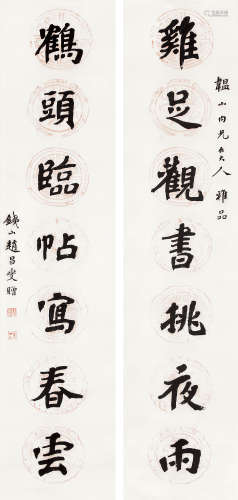 雞足觀書挑夜雨
韞山内兄大人雅品
鶴頭臨帖寫春雲
鐵山趙昌燮贈